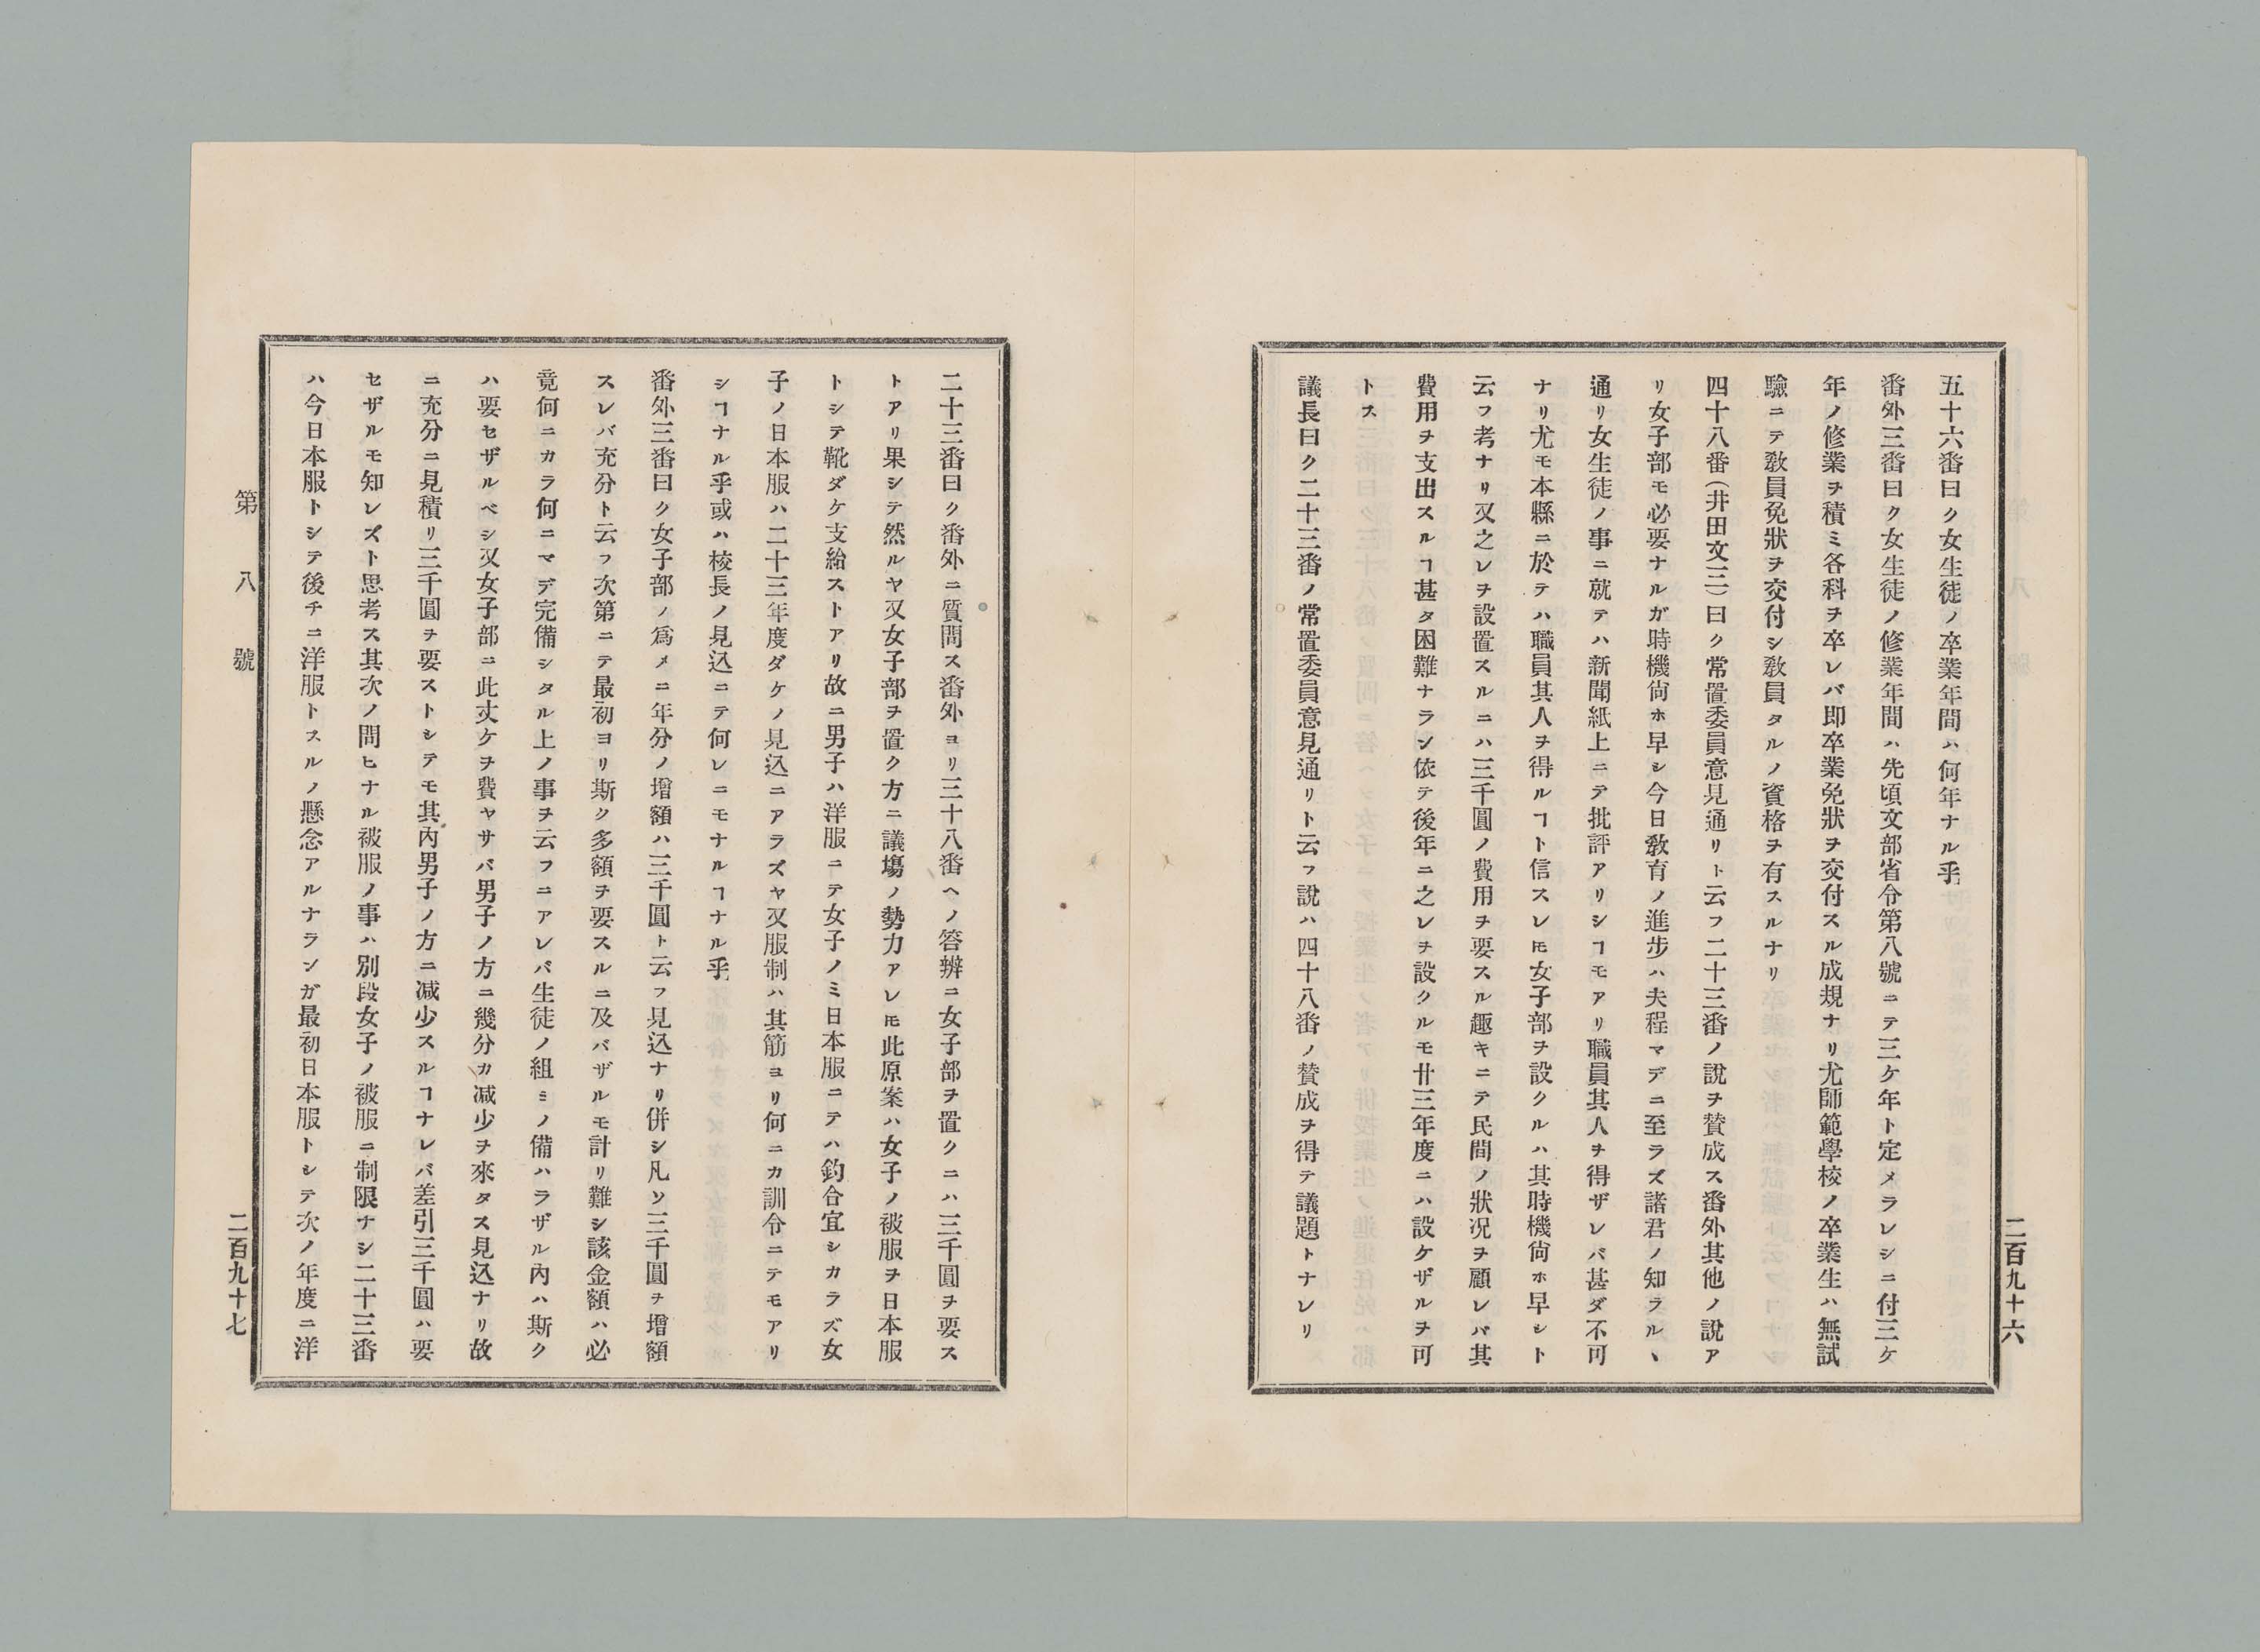 五十六番曰ク女生徒ノ卒業年間ハ何年ナル乎
番外三番曰ク女生徒ノ修業年間ハ先頃文部省令第八號ニテ三ケ年ト定メラレシニ付三ケ
年ノ修業ヲ積ミ各科ヲ卒レバ即卒業免狀ヲ交付スル成規ナリ尤師範學校ノ卒業生ハ無試
驗ニテ敎員免狀ヲ交付シ敎員タルノ資格ヲ有スルナリ
四十八番(井田文三)曰ク常置委員意見通リト云フ二十三番ノ說ヲ賛成ス番外其他ノ說ア
リ女子部モ必要ナルガ時機尙ホ早シ今日敎育ノ進步ハ夫程マデニ至ラズ諸君ノ知ラルヽ
通リ女生徒ノ事ニ就テハ新聞紙上ニテ批評アリシヿモアリ職員其人ヲ得ザレバ甚ダ不可
ナリ尤モ本縣ニ於テハ職員其人ヲ得ルヿト信スレ𪜈女子部ヲ設クルハ其時機尙ホ早シト
云フ考ナリ又之レヲ設置スルニハ三千圓ノ費用ヲ要スル趣キニテ民間ノ狀況ヲ顧レバ其
費用ヲ支出スルヿ甚タ困難ナラン依テ後年ニ之レヲ設クルモ廿三年度ニハ設ケザルヲ可
トス
議長曰ク二十三番ノ常置委員意見通リト云フ說ハ四十八番ノ賛成ヲ得テ議題トナレリ
二百九十六
二十三番曰ク番外ニ質問ス番外ヨリ三十八番ヘノ答辨ニ女子部ヲ置クニハ三千圓ヲ要ス
トアリ果シテ然ルヤ又女子部ヲ置ク方ニ議塲ノ勢力アレ𪜈此原案ハ女子ノ被服ヲ日本服
トシテ靴ダケ支給ストアリ故ニ男子ハ洋服ニテ女子ノミ日本服ニテハ釣合宜シカラズ女
子ノ日本服ハ二十三年度ダケノ見込ニアラズヤ又服制ハ其筋ヨリ何ニカ訓令ニテモアリ
シヿナル乎或ハ校長ノ見込ニテ何レニモナルヿナル乎
番外三番曰ク女子部ノ爲メニ年分ノ增額ハ三千圓ト云フ見込ナリ併シ凡ソ三千圓ヲ增額
スレバ充分ト云フ次第ニテ最初ヨリ斯ク多額ヲ要スルニ及バザルモ計リ難シ該金額ハ必
竟何ニカラ何ニマデ完備シタル上ノ事ヲ云フニアレバ生徒ノ組ミノ備ハラザル內ハ斯ク
ハ要セザルベシ又女子部ニ此丈ケヲ費ヤサバ男子ノ方ニ幾分カ减少ヲ來タス見込ナリ故
ニ充分ニ見積リ三千圓ヲ要ストシテモ其內男子ノ方ニ减少スルヿナレバ差引三千圓ハ要
セザルモ知レズト思考ス其次ノ問ヒナル被服ノ事ハ別段女子ノ被服ニ制限ナシ二十三番
ハ今日本服トシテ後チニ洋服トスルノ懸念アルナランガ最初日本服トシテ次ノ年度ニ洋
第八號
二百九十七